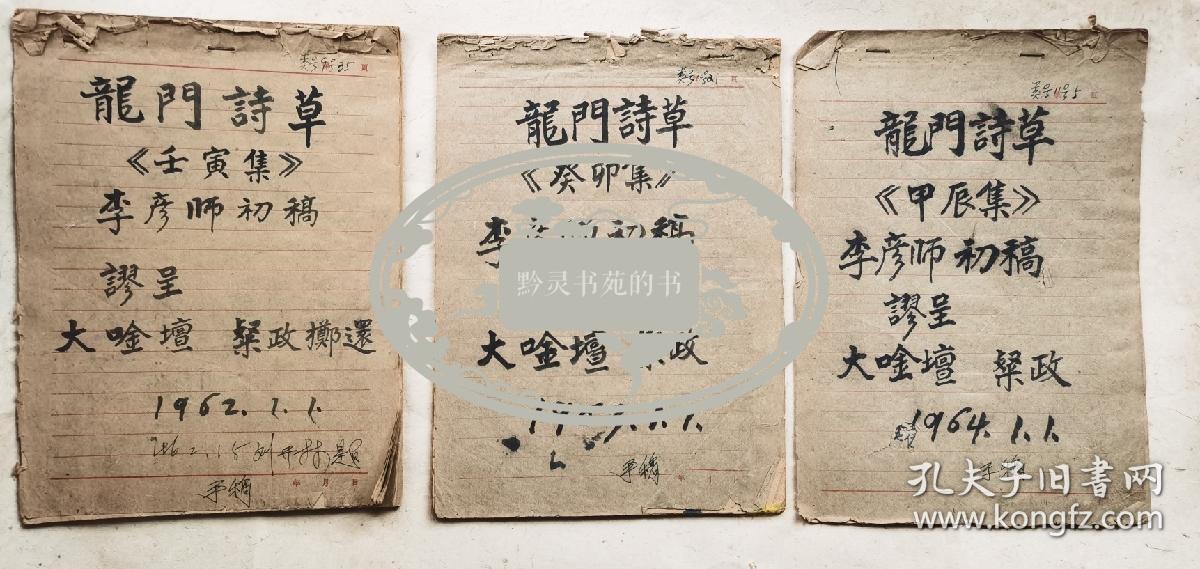 頁
龍門詩草
《壬寅集》
李彦师初稿
謬呈
大唫壇 粲政擲還
1962.1.1.
年 月 日
手稿
頁
龍門詩草
《癸卯集》
李彦师初稿
大唫壇 粲政
手稿
年
龍門詩草
《甲辰集》
李彦师初稿
謬呈
大唫壇 粲政
1964.1.1.
手稿
黔灵书苑的书
孔夫子旧书网
www.kongfz.com